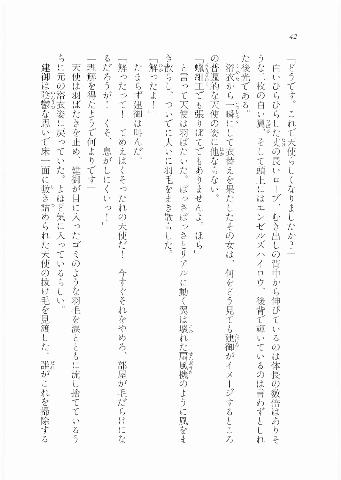 42
「どうです。これで天使らしくなりましたか？」
白いひらひらした丈の長いローブ、むき出しの背中から伸びているのは体長の数倍はありそ
うな二枚の白い翼。そして頭上にはエンゼルズハイロウ、後背で輝いているのは言わずとしれ
た後光である。
浴衣から一瞬にして衣替えを果たしたその女は、何をどう見ても建御がイメージするところ
の普遍的な天使の姿に他ならない。
「蝋細工でも張りぼてでもありませんよ、ほら」
と言って天使は羽ばたいた。ばっさばっさとリアルに動く翼は壊れた扇風機のように風をま
き散らし、ついでに大いに羽毛をまき散らした。
「解ったよ！」
たまらず建御は叫んだ。
「解ったって！　てめえはくそったれの天使だ！　今すぐそれをやめろ、部屋が毛だらけにな
るだろうが！　くそ、息がしにくいっ！」
「理解を得たようで何よりです」
天使は羽ばたきを止め、建御が目に入ったゴミのような羽毛を涙とともに流し捨てているう
ちに元の浴衣姿に戻っていた。よほど気に入っているらしい。
建御は陰鬱な思いで床一面に敷き詰められた天使の抜け毛を見渡した。誰がこれを掃除する